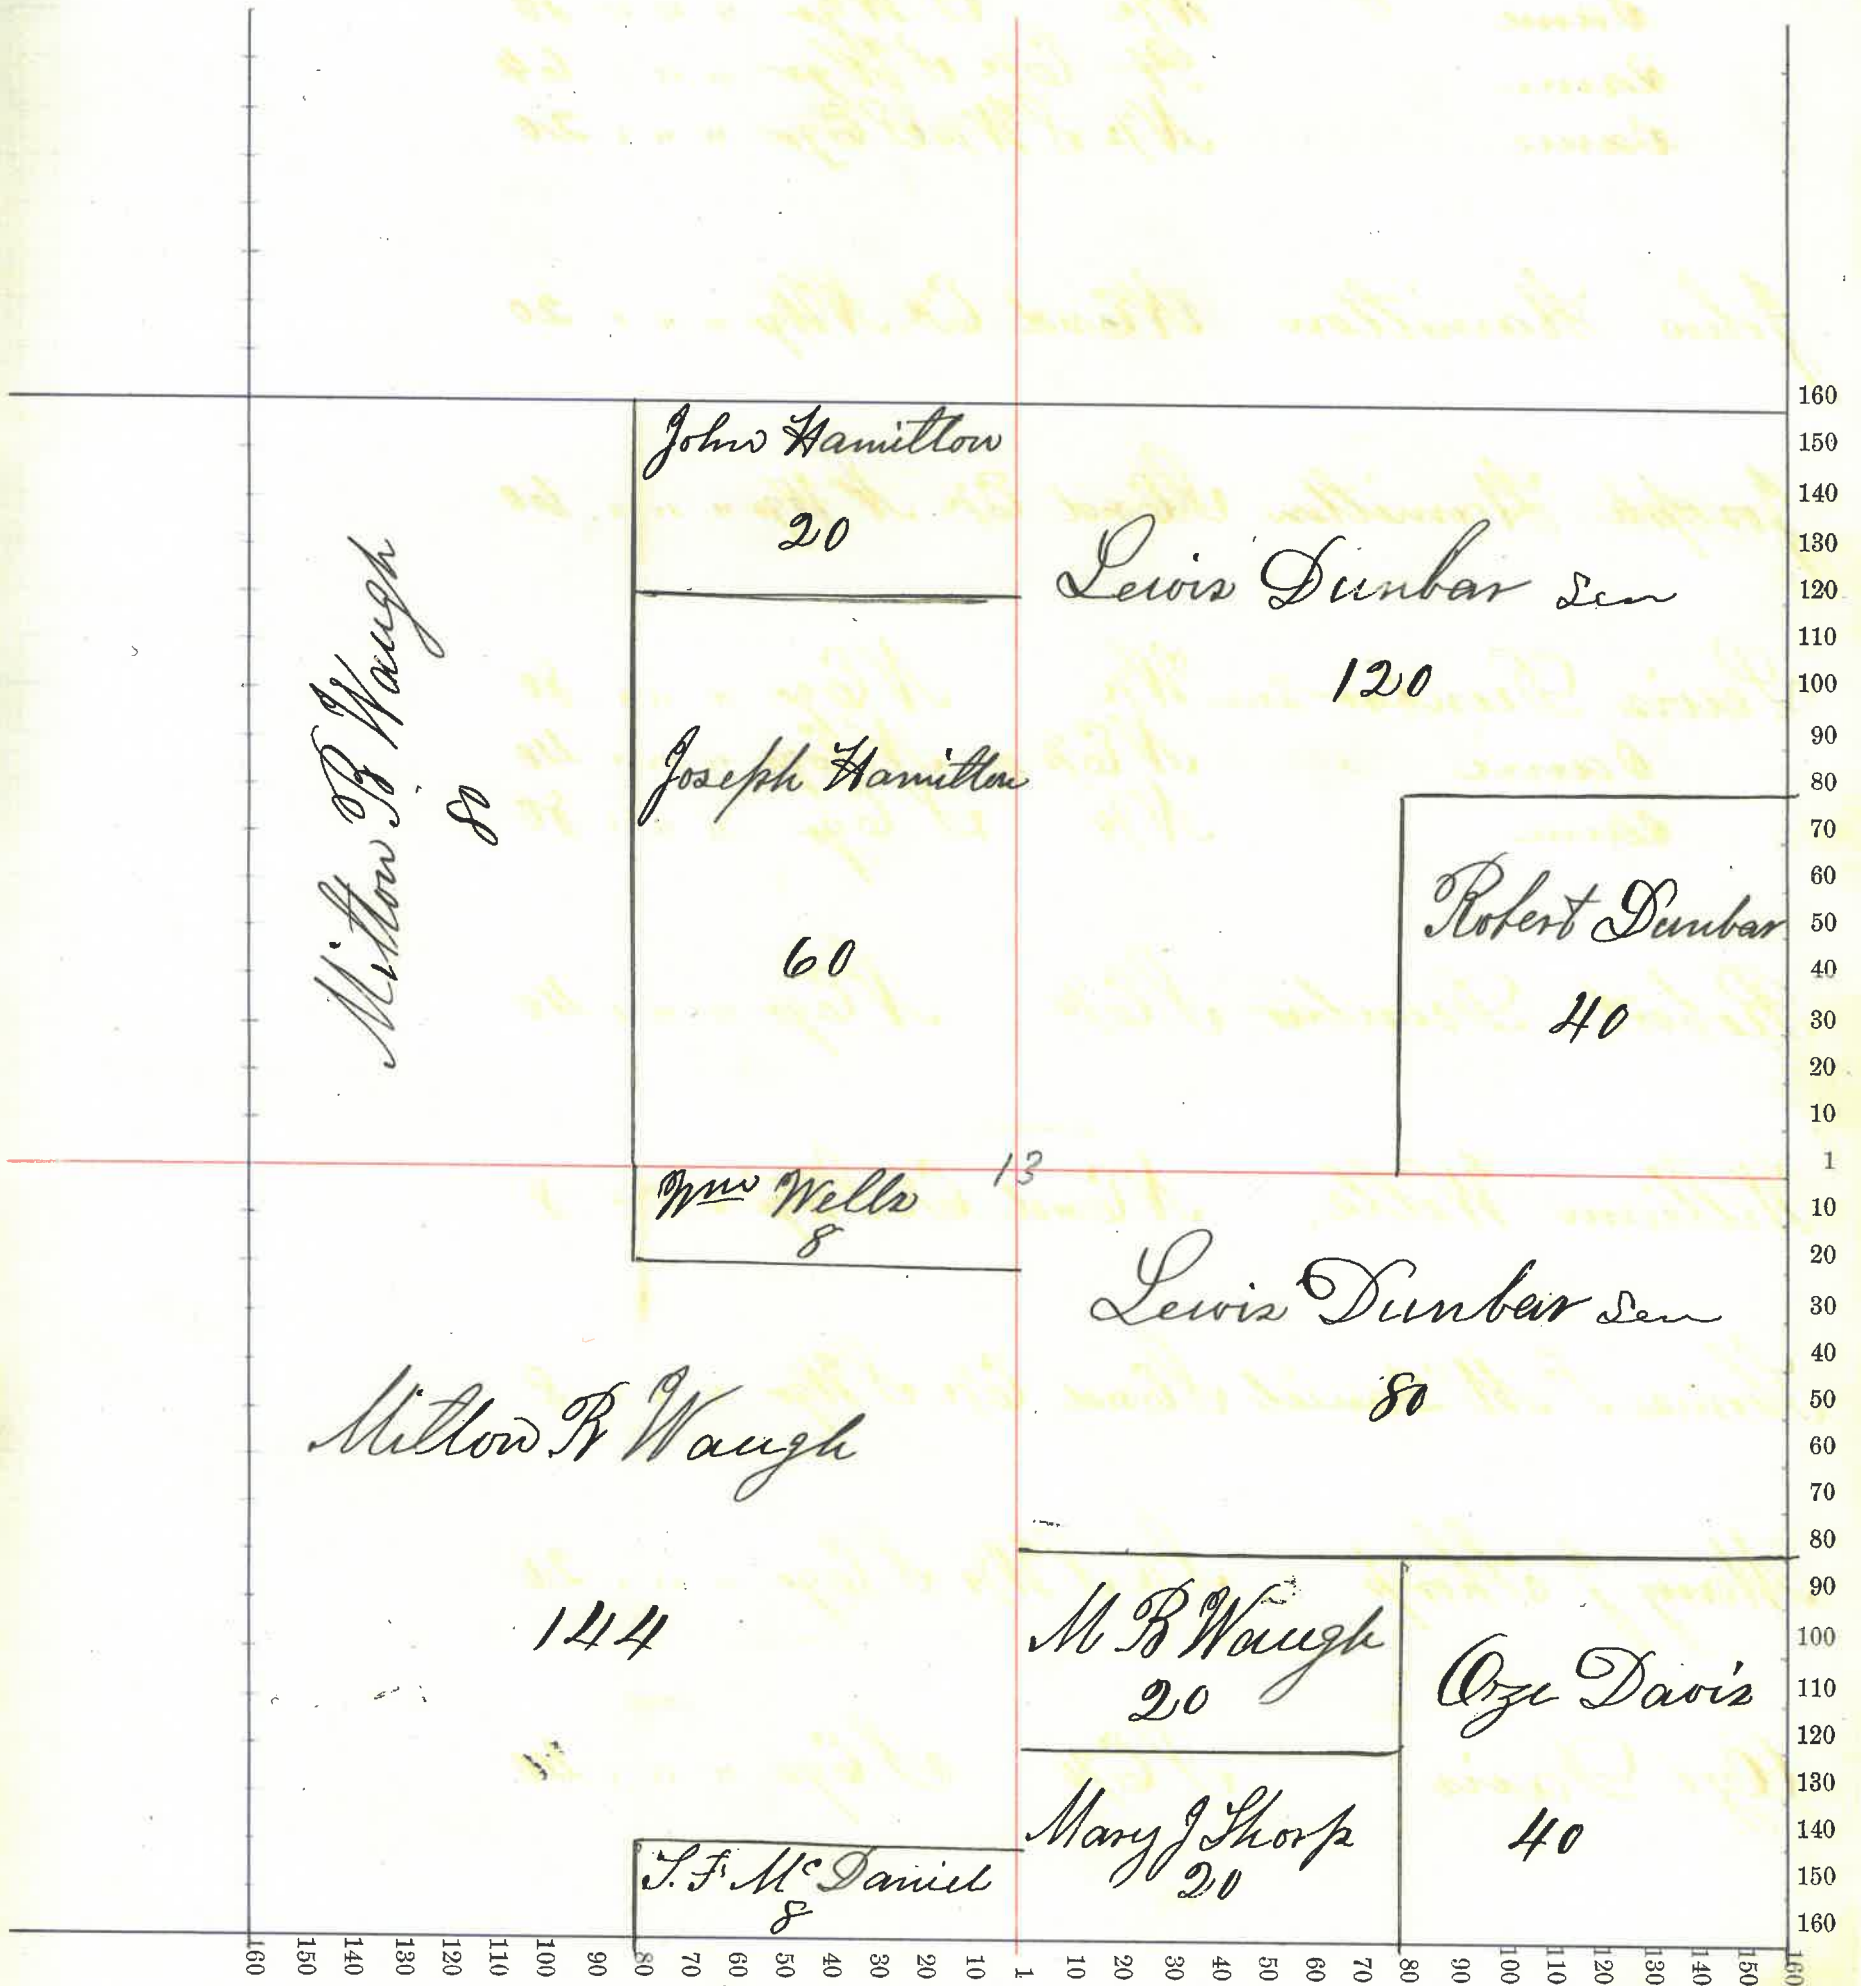 John Hamilton
20
Lewis Dunbar Sen
120
Milton B Waugh
80
Joseph Hamilton
60
Robert Dunbar
40
13
Wm Wells
8
Lewis Dunbar Sen
80
Milton B Waugh
144
M B Waugh
20
Orze Davis
40
Mary J Thorp
20
T. F. Mc Daniel
8
160
150
140
130
120
110
100
90
80
70
60
50
40
30
20
10
1
10
20
30
40
50
60
70
80
90
100
110
120
130
140
150
160
160 150 140 130 120 110 100 90 80 70 60 50 40 30 20 10 1 10 20 30 40 50 60 70 80 90 100 110 120 130 140 150 160